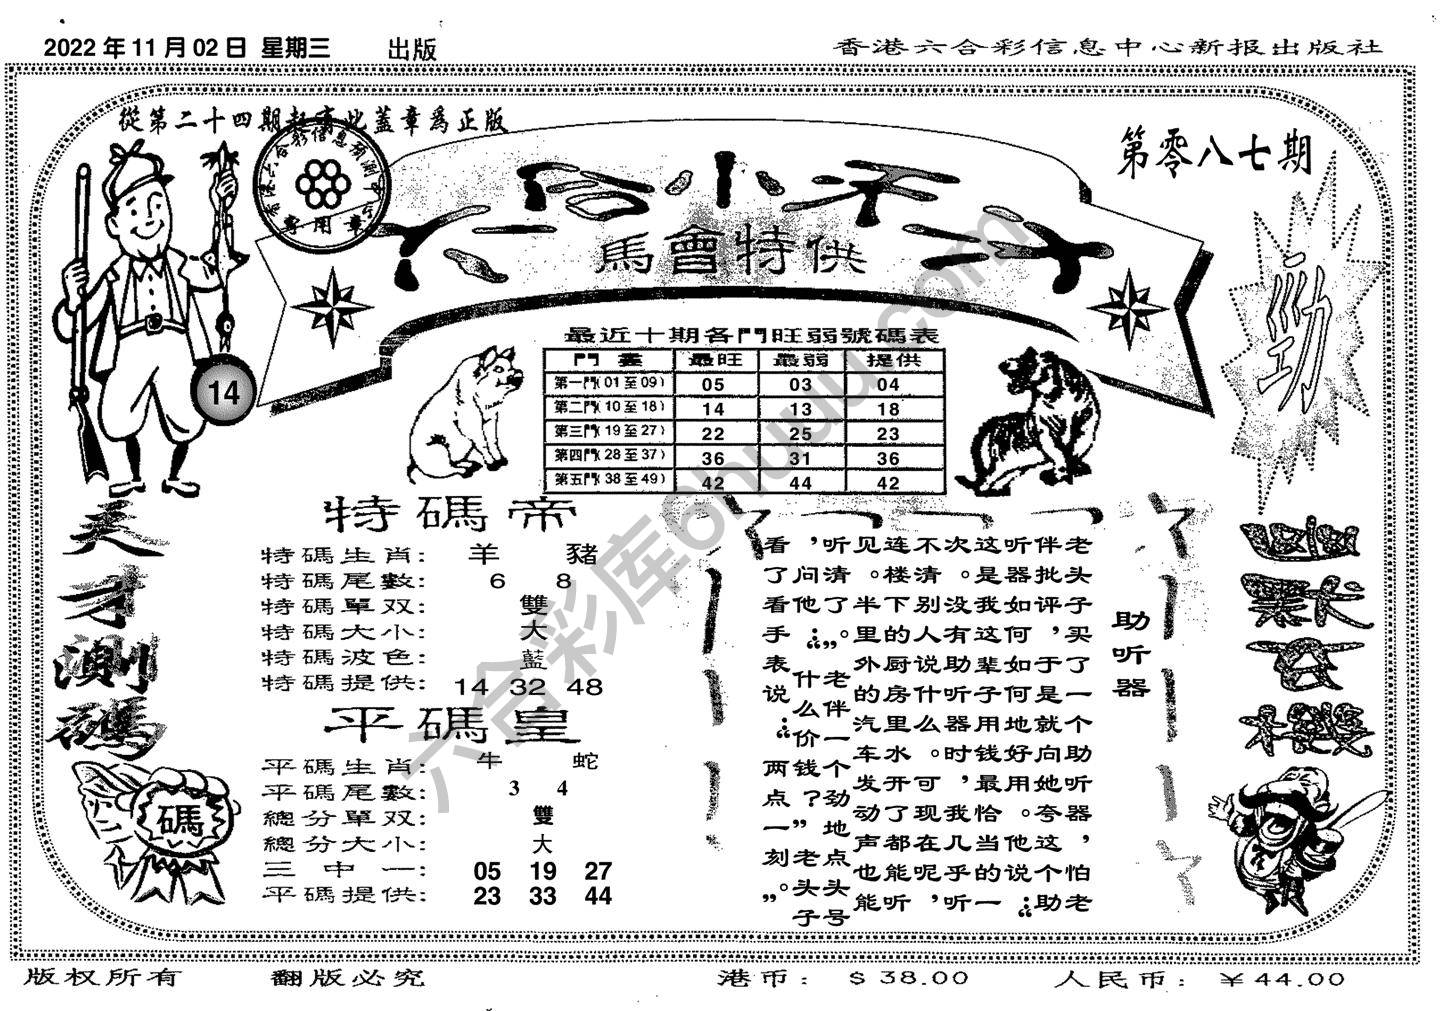 2022 年 11 月 02 日 星期三 出版
香港六合彩信息中心新报出版社
從第二十四期起有此蓋章爲正版
香港六合彩信息預測中心
專用章
第零八七期
六合小天才
馬會特供
勁
14
最近十期各門旺弱號碼表
最旺 最弱 提供
第一門(01至09) 05 03 04
第二門(10至18) 14 13 18
第三門(19至27) 22 25 23
第四門(28至37) 36 31 36
第五門(38至49) 42 44 42
天才測碼
碼
特碼帝
特碼生肖: 羊 豬
特碼尾數: 6 8
特碼單双: 雙
特碼大小: 大
特碼波色: 藍
特碼提供: 14 32 48
平碼皇
平碼生肖: 牛 蛇
平碼尾數: 3 4
總分單双: 雙
總分大小: 大
三中一: 05 19 27
平碼提供: 23 33 44
助听器
老头子买了一个助听器，怕老
伴批评，于是就向她夸这个助
听器如何如何地好用。他说：“
这是我这辈子用钱最恰当的一
次。没有助听器时，我几乎听，
不清别人说什么。可现在呢能听
连楼下的厨房里水开了都能
见。半里外的汽车发动声也能
听清了。”老伴一个劲地点头
，问他：“什么价钱？”老头子
看了看手表说：“两点一刻。”
六合彩库6huuu.com
版权所有 翻版必究 港币: $38.00 人民币: ￥44.00